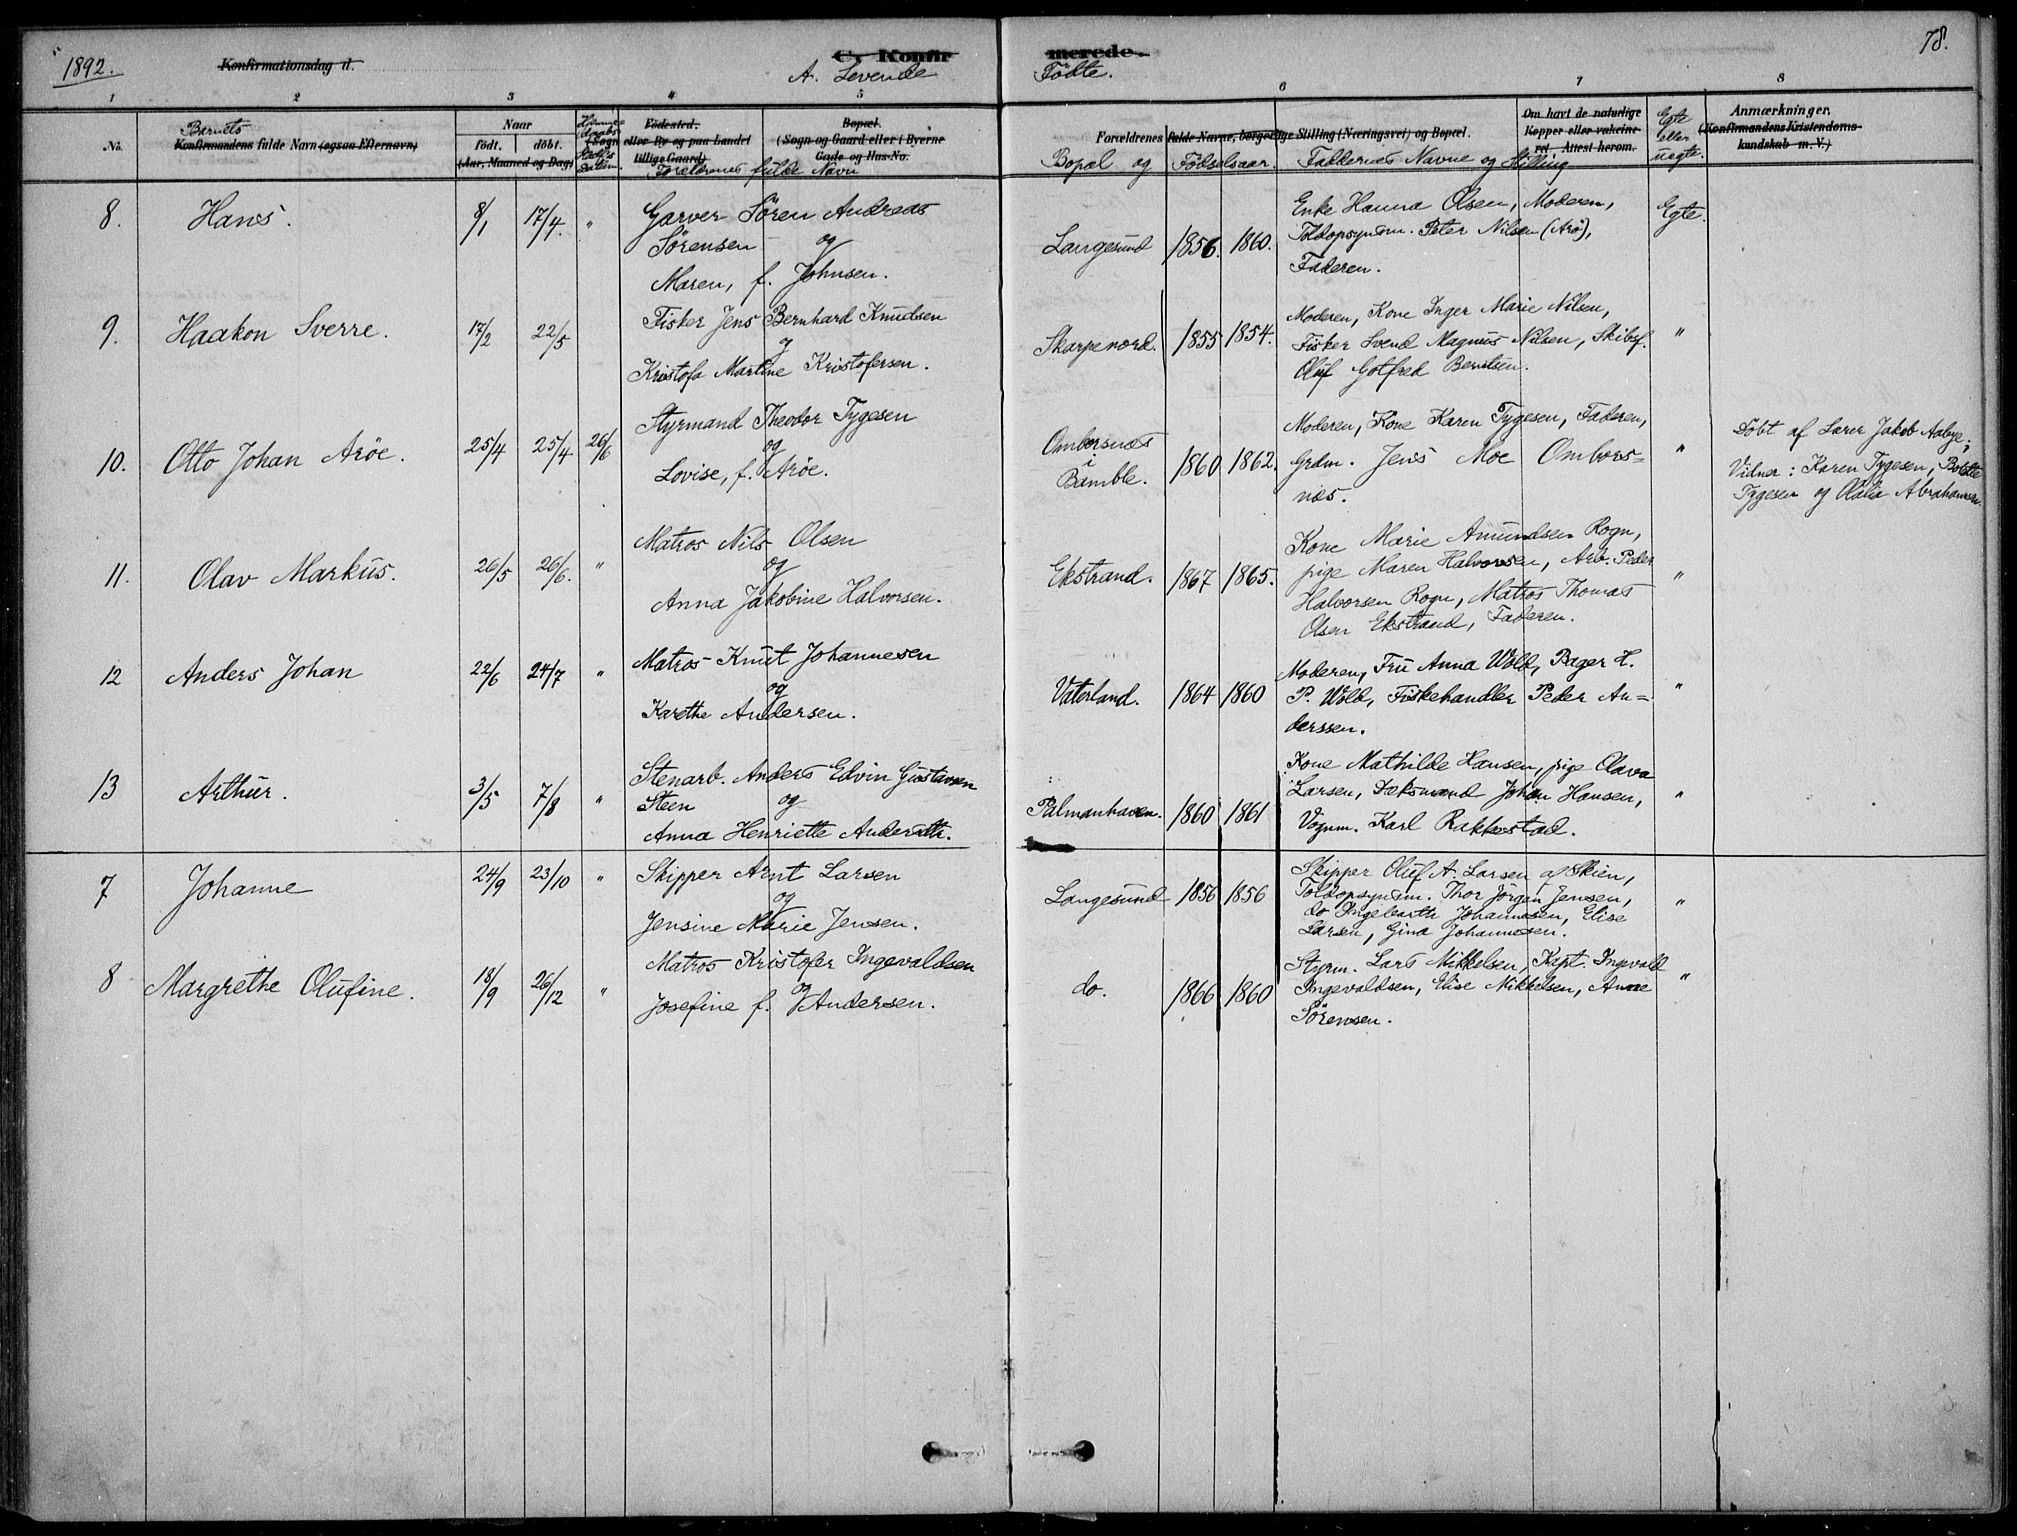 1892.
Konfirmationsdag d.
C. Konfir
merede.
A. Levende
Födte.
78.
1 2 3 4 5 6 7 8
No.
Barnets
Konfirmandens fulde Navn (ogsaa Efternavn)
Naar
födt. döbt.
(Aar, Maaned og Dag)
Födested.
(Sogn eller By og paa Landet
tillige Gaard)
Forældrenes fulde Navn
Bopæl.
(Sogn og Gaard eller i Byerne
Gade og Hus-No.
Forældrenes fulde Navne, borgerlige Stilling (Næringsvei) og Bopæl.
Bopæl og Födselsaar.
Faddernes Navne og Stilling
Om havt de naturlige
Kopper eller vakcine-
ret. Attest herom.
Egte
eller
uegte.
Anmærkninger.
(Konfirmandens Kristendoms-
kundskab m. V.)
8. Hans. 8/1 17/4. "
Garver Sören Andreas
Sörensen og
Maren, f. Johnsen.
Langesund 1856. 1860.
Enke Hanna Olsen, Moderen,
Toldopsynsm. Peter Nilsen (Arö),
Faderen.
Egte.
9. Haakon Sverre. 17/2 22/5
Fisker Jens Bernhard Knudsen
og
Kristofa Martine Kristofersen.
Skarpenord. 1855 1854.
Moderen, Kone Inger Marie Nilsen,
Fisker Svend Magnus Nilsen, Skibsf.
Oluf Gotfred Berntsen.
"
10. Otto Johan Aröe. 25/4 25/4 26/6
Styrmand Theodor Tygesen
og
Lovise, f. Aröe.
Ombersnæs
i
Bamble. 1860 1862.
Moderen, Kone Karen Tygesen, Faderen,
Grdm. Jens Moe Ombors=
næs.
"
Döbt af Lærer Jakob Aabye;
Vidner: Karen Tygesen, Bolette
Tygesen og Olalia Abrahamsen.
11. Olav Markus. 26/5 26/6. "
Matros Nils Olsen
og
Anna Jakobine Halvorsen.
Ekstrand. 1867 1865.
Kone Marie Amundsen Rogn,
pige Maren Halvorsen, Arb. Peder
Halvorsen Rogn, Matros Thomas
Olsen Ekstrand, Faderen.
"
12 Anders Johan 22/6 24/7 "
Matros Knut Johannesen
og
Karethe Andersen.
Vaterland. 1864 1860
Moderen, Fru Anna Wold, Bager H.
P. Wold, Fiskehandler Peder An=
derssen.
"
13 Arthur. 3/5 7/8 "
Stenarb. Anders Edvin Gustavsen
Steen og
Anna Henriette Andersdtr.
Palmanhaven. 1860 1861
Kone Mathilde Hansen, pige Olava
Larsen, Dæksmand Johan Hansen,
Vognm. Karl Rakkestad.
"
7 Johanne 24/9 23/10 "
Skipper Arnt Larsen
og
Jensine Marie Jensen.
Langesund 1856 1856
Skipper Oluf A. Larsen af Skien,
Toldopsynsm. Thor Jörgen Jensen,
do Ingebarth Johannesen, Elise
Larsen, Gina Johannesen.
"
8 Margrethe Olufine. 18/9 26/12 "
Matros Kristofer Ingevaldsen
og
Josefine f. Andersen.
do. 1866 1860
Styrm. Lars Mikkelsen, Kapt. Ingevald
Ingevaldsen, Elise Mikkelsen, Anne
Sörensen.
"